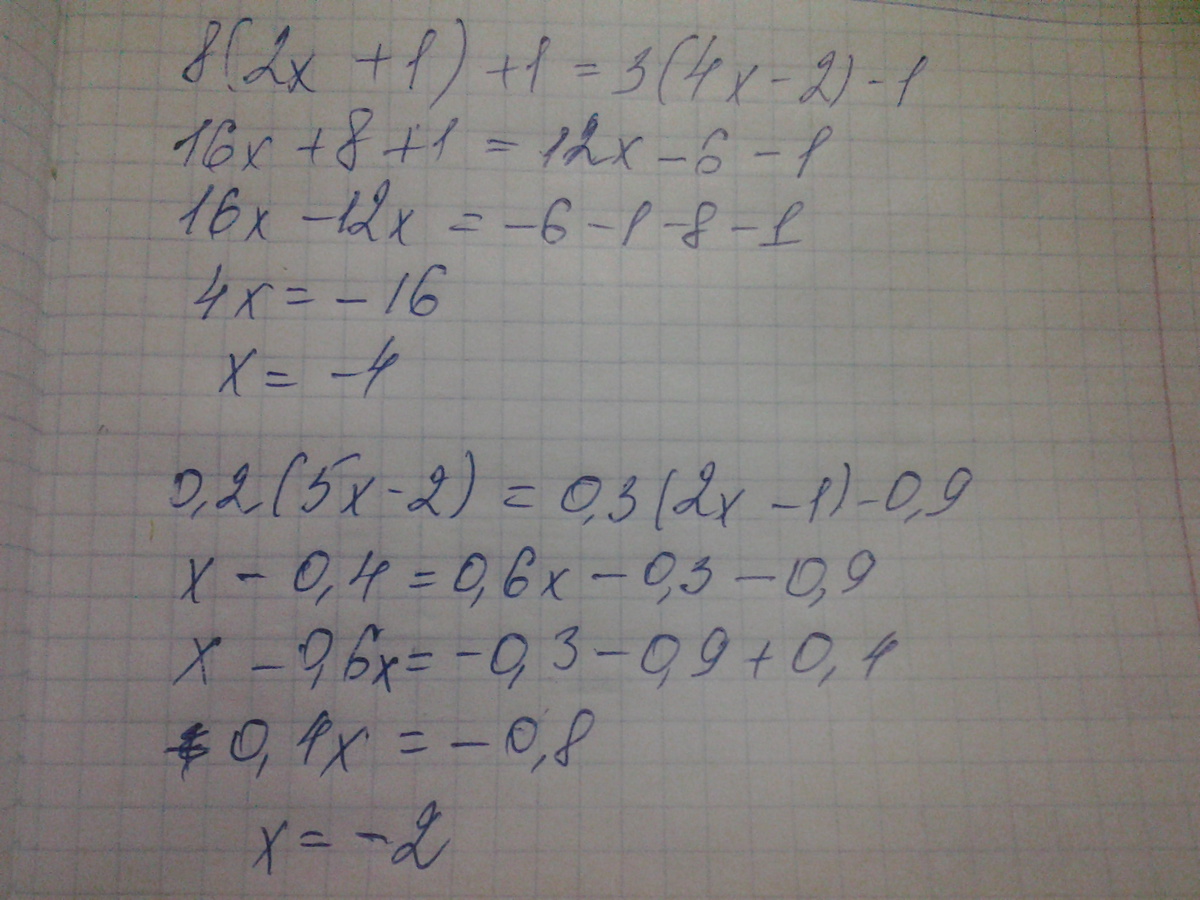 8(2x + 1) + 1 = 3(4x - 2) - 1
16x + 8 + 1 = 12x - 6 - 1
16x - 12x = -6 - 1 - 8 - 1
4x = - 16
x = -4
0,2(5x - 2) = 0,3(2x - 1) - 0,9
x - 0,4 = 0,6x - 0,3 - 0,9
x - 0,6x = -0,3 - 0,9 + 0,4
0,4x = - 0,8
x = -2